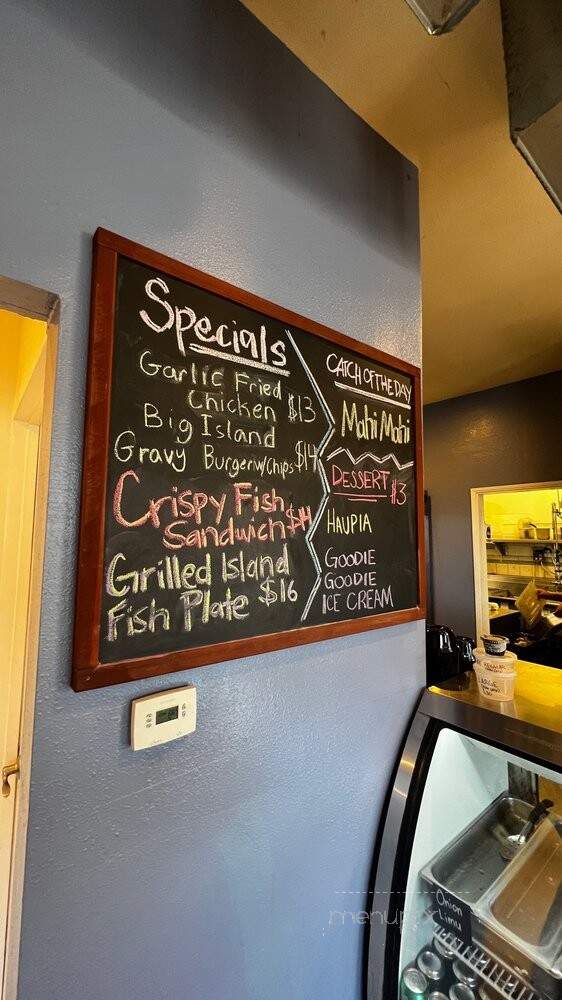 Specials
Garlic Fried
Chicken $13
Big Island
Gravy Burger w/chips $14
Crispy Fish
Sandwich $14
Grilled Island
Fish Plate $16
CATCH OF THE DAY
Mahi Mahi
DESSERT $3
HAUPIA
GOODIE
GOODIE
ICE CREAM
REGULAR
LARGE
Onion
Limu